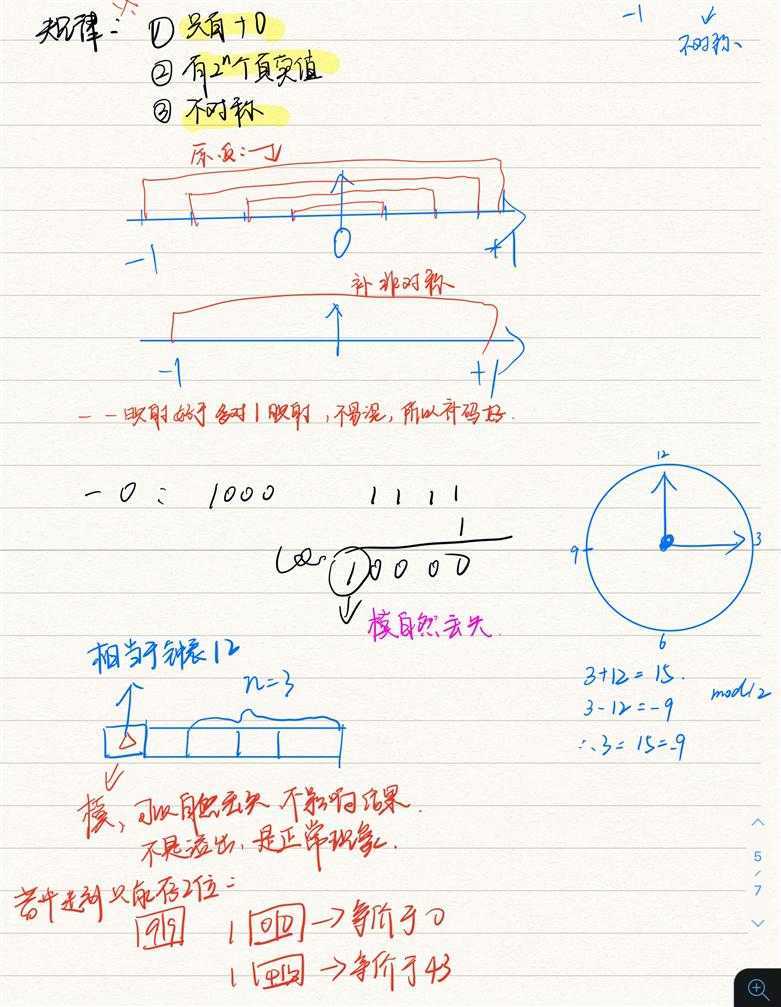 规律： ① 只有+0
② 有2ⁿ个真实值
③ 不对称
-1
不对称
原.反:一一
-1 0 +1
补非对称
-1 +1
一一映射好于多对1映射，不易混，所以补码好.
-0: 1000
1111
1
10000
模自然丢失
12
3
6
9
3+12=15.
3-12=-9
∴3=15=-9
mod12
相当于钟表12
n=3
模，可以自然丢失 不影响结果.
不是溢出，是正常现象.
若十进制只能存2位：
99
1 00 → 等价于0
1 43 → 等价于43
5
/
7